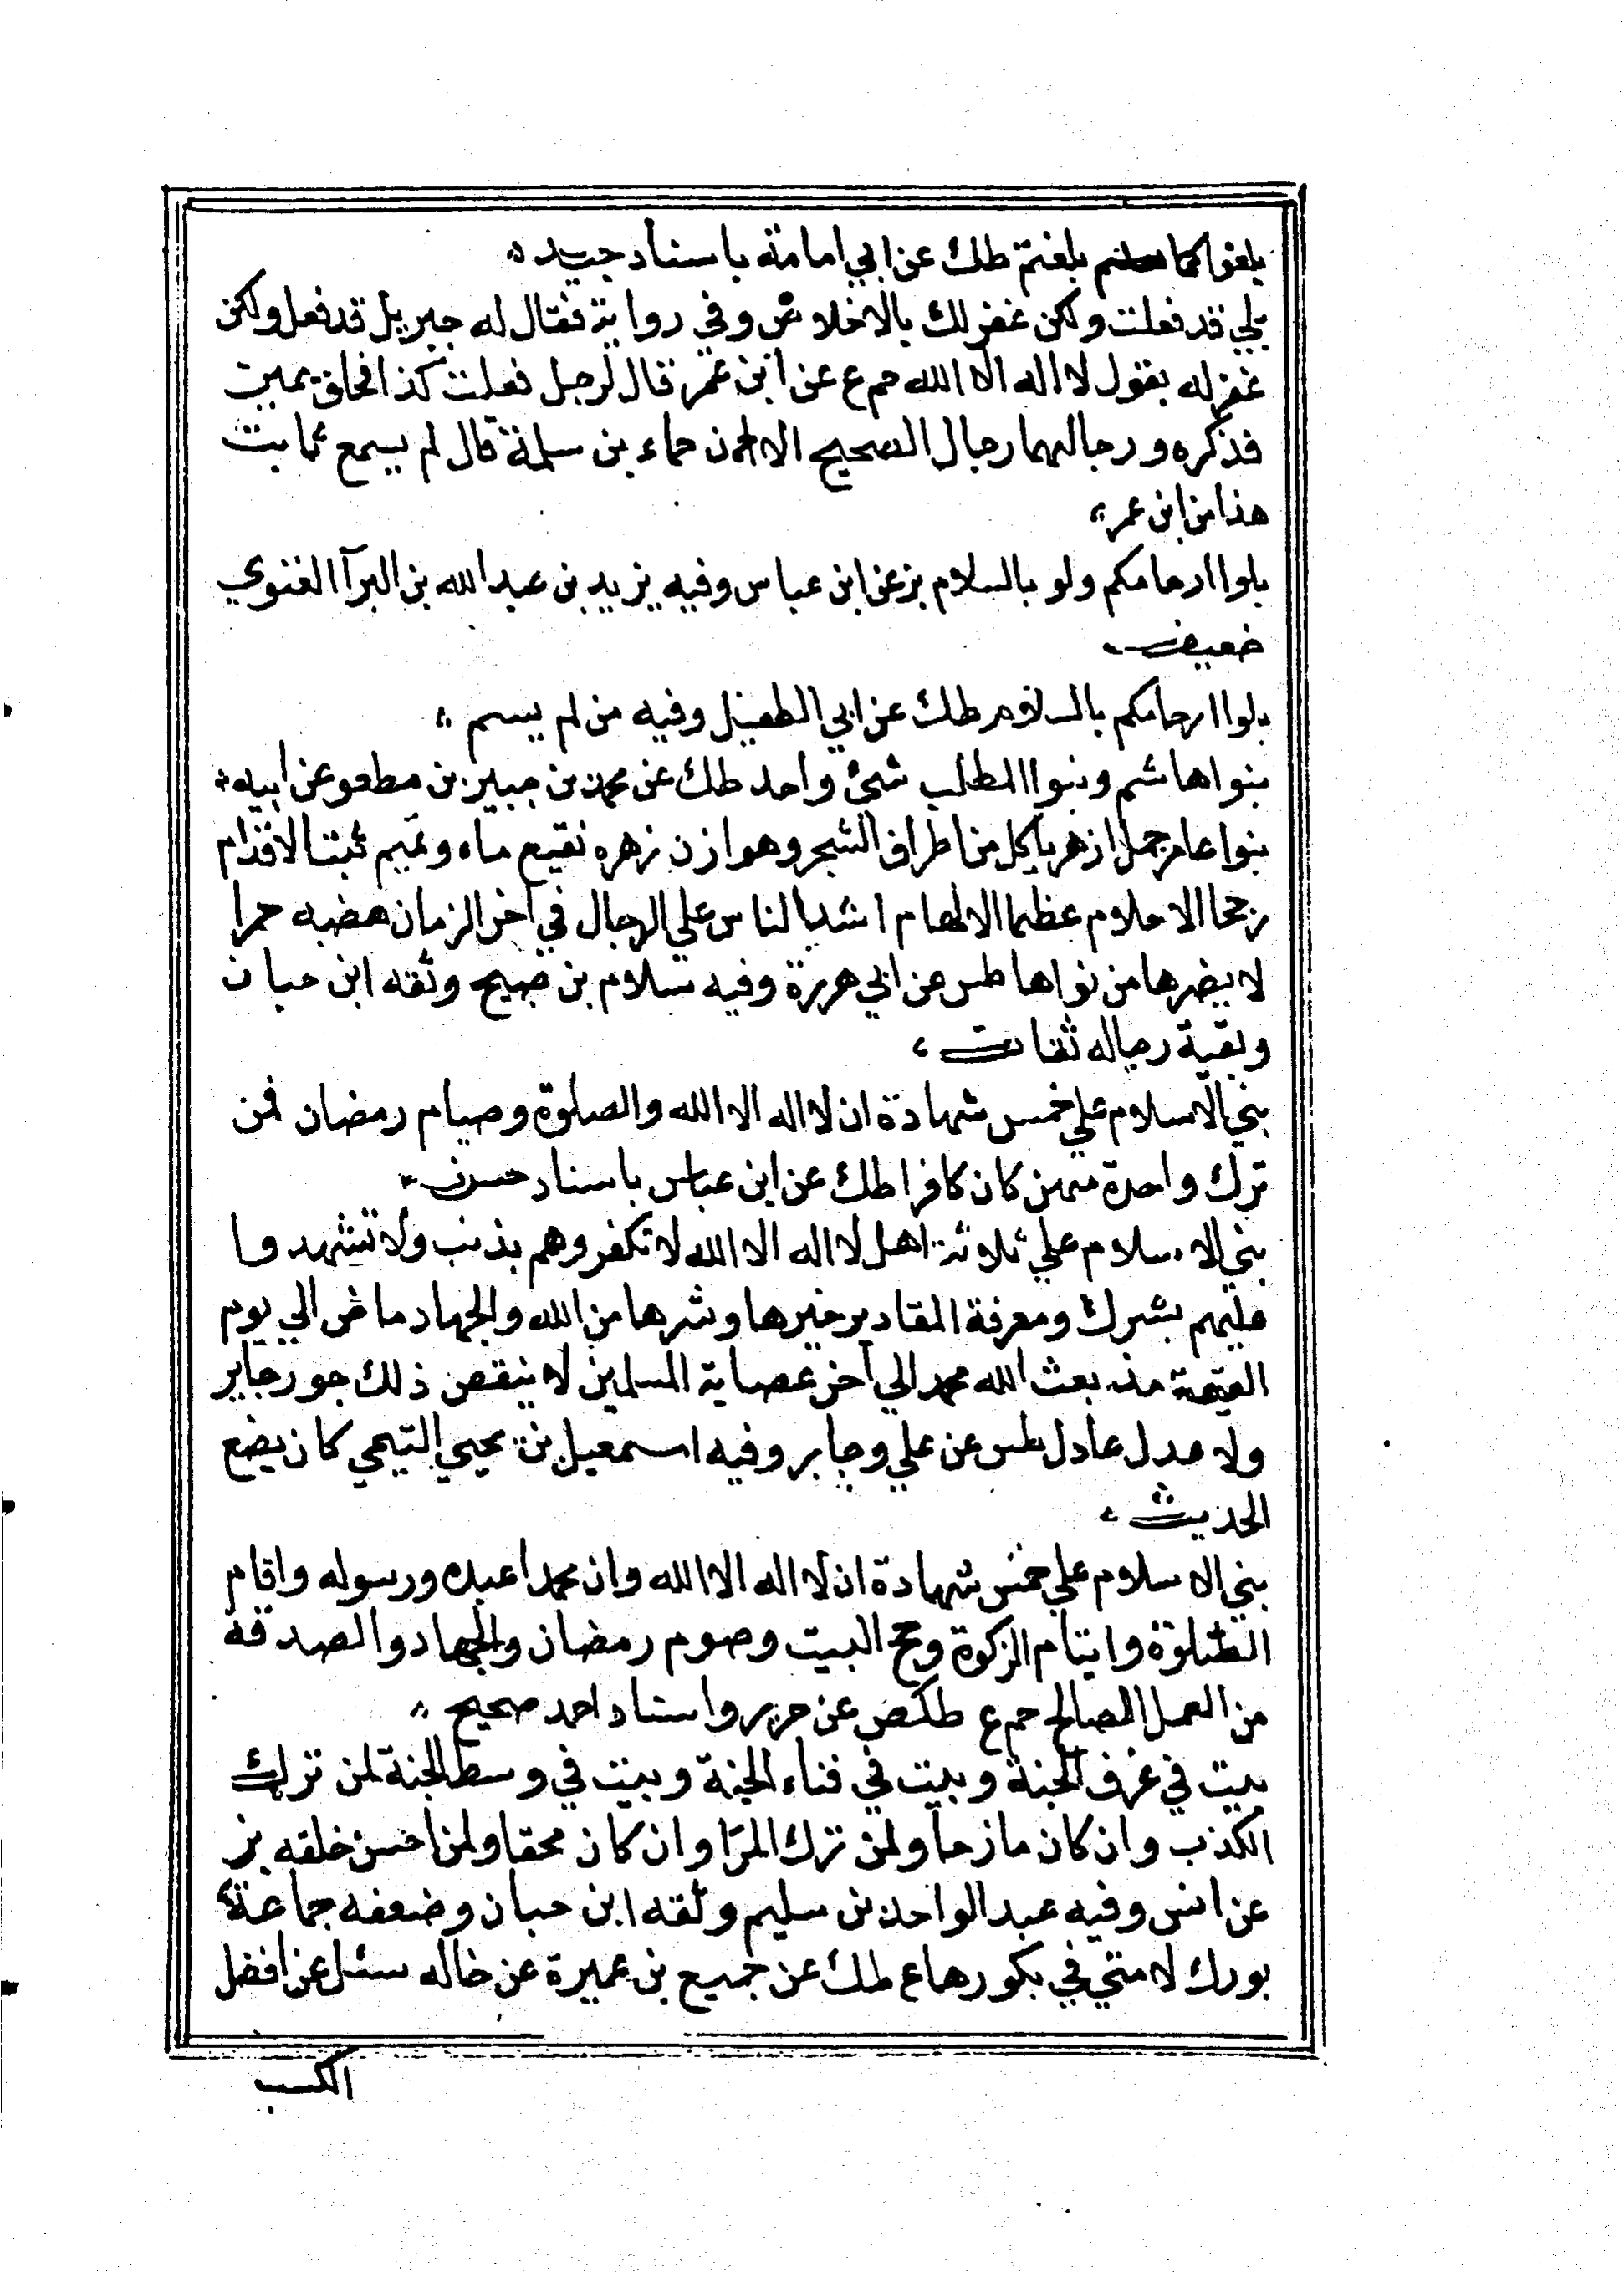 يلغوا كما بلغتم طك عن ابي امامة باسناد جيد
بلي قد فعلت ولكن غفر لك بالاخلاص وفي رواية فقال له جبريل قد فعل ولكن
غفر له بقول لا اله الا الله حم ع عن ابن عمر قال لرجل فعلت كذا فحلف يمين
فذكره ورجالهما رجال الصحيح الا ان حماد بن سلمة قال لم يسمع ثابت
هذا من ابن عمر
بلوا ارحامكم ولو بالسلام بز عن ابن عباس وفيه يزيد بن عبد الله بن البرآ الغنوي
ضعيف
بلوا ارحامكم بالسلام طك عن ابي الطفيل وفيه من لم يسم
بنوا هاشم وبنوا المطلب شئ واحد طك عن محمد بن جبير بن مطعم عن ابيه
بنوا عامر جمل ازهر ياكل من اطراف الشجر وهوازن زهره نقيع ماء وتميم ثبتا الاقدام
رجحا الاحلام عظما الالهام اشد الناس علي الدجال في آخر الزمان هضبه حمرا
لا يضرها من نواها طس عن ابي هريرة وفيه سلام بن صبيح وثقه ابن حبان
وبقية رجاله ثقات
بني الاسلام علي خمس شهادة ان لا اله الا الله والصلوة وصيام رمضان فمن
ترك واحدة منهن كان كافرا طك عن ابن عباس باسناد حسن
بني الاسلام علي ثلاثة اهل لا اله الا الله لا تكفروهم بذنب ولا تشهدوا
عليهم بشرك ومعرفة المقادير خيرها وشرها من الله والجهاد ماض الي يوم
القيمة مذ بعث الله محمد الي آخر عصابة المسلمين لا ينقص ذلك جور جاير
ولا عدل عادل طس عن علي وجابر وفيه اسمعيل بن يحيي التيمي كان يضع
الحديث
بني الاسلام علي خمس شهادة ان لا اله الا الله وان محمدا عبده ورسوله واقام
الصلوة وايتام الزكوة وحج البيت وصوم رمضان والجهاد والصدقة
من العمل الصالح حم ع طكص عن جرير واسناد احمد صحيح
بيت في غرف الجنة وبيت في فناء الجنة وبيت في وسط الجنة لمن ترك
الكذب وان كان مازحا ولمن ترك المرا وان كان محقا ولمن احسن خلقه بز
عن انس وفيه عبد الواحد بن سليم وثقه ابن حبان وضعفه جماعة
بورك لامتي في بكورها ع طك عن جميع بن عميرة عن خاله سئل عن افضل
الكسب